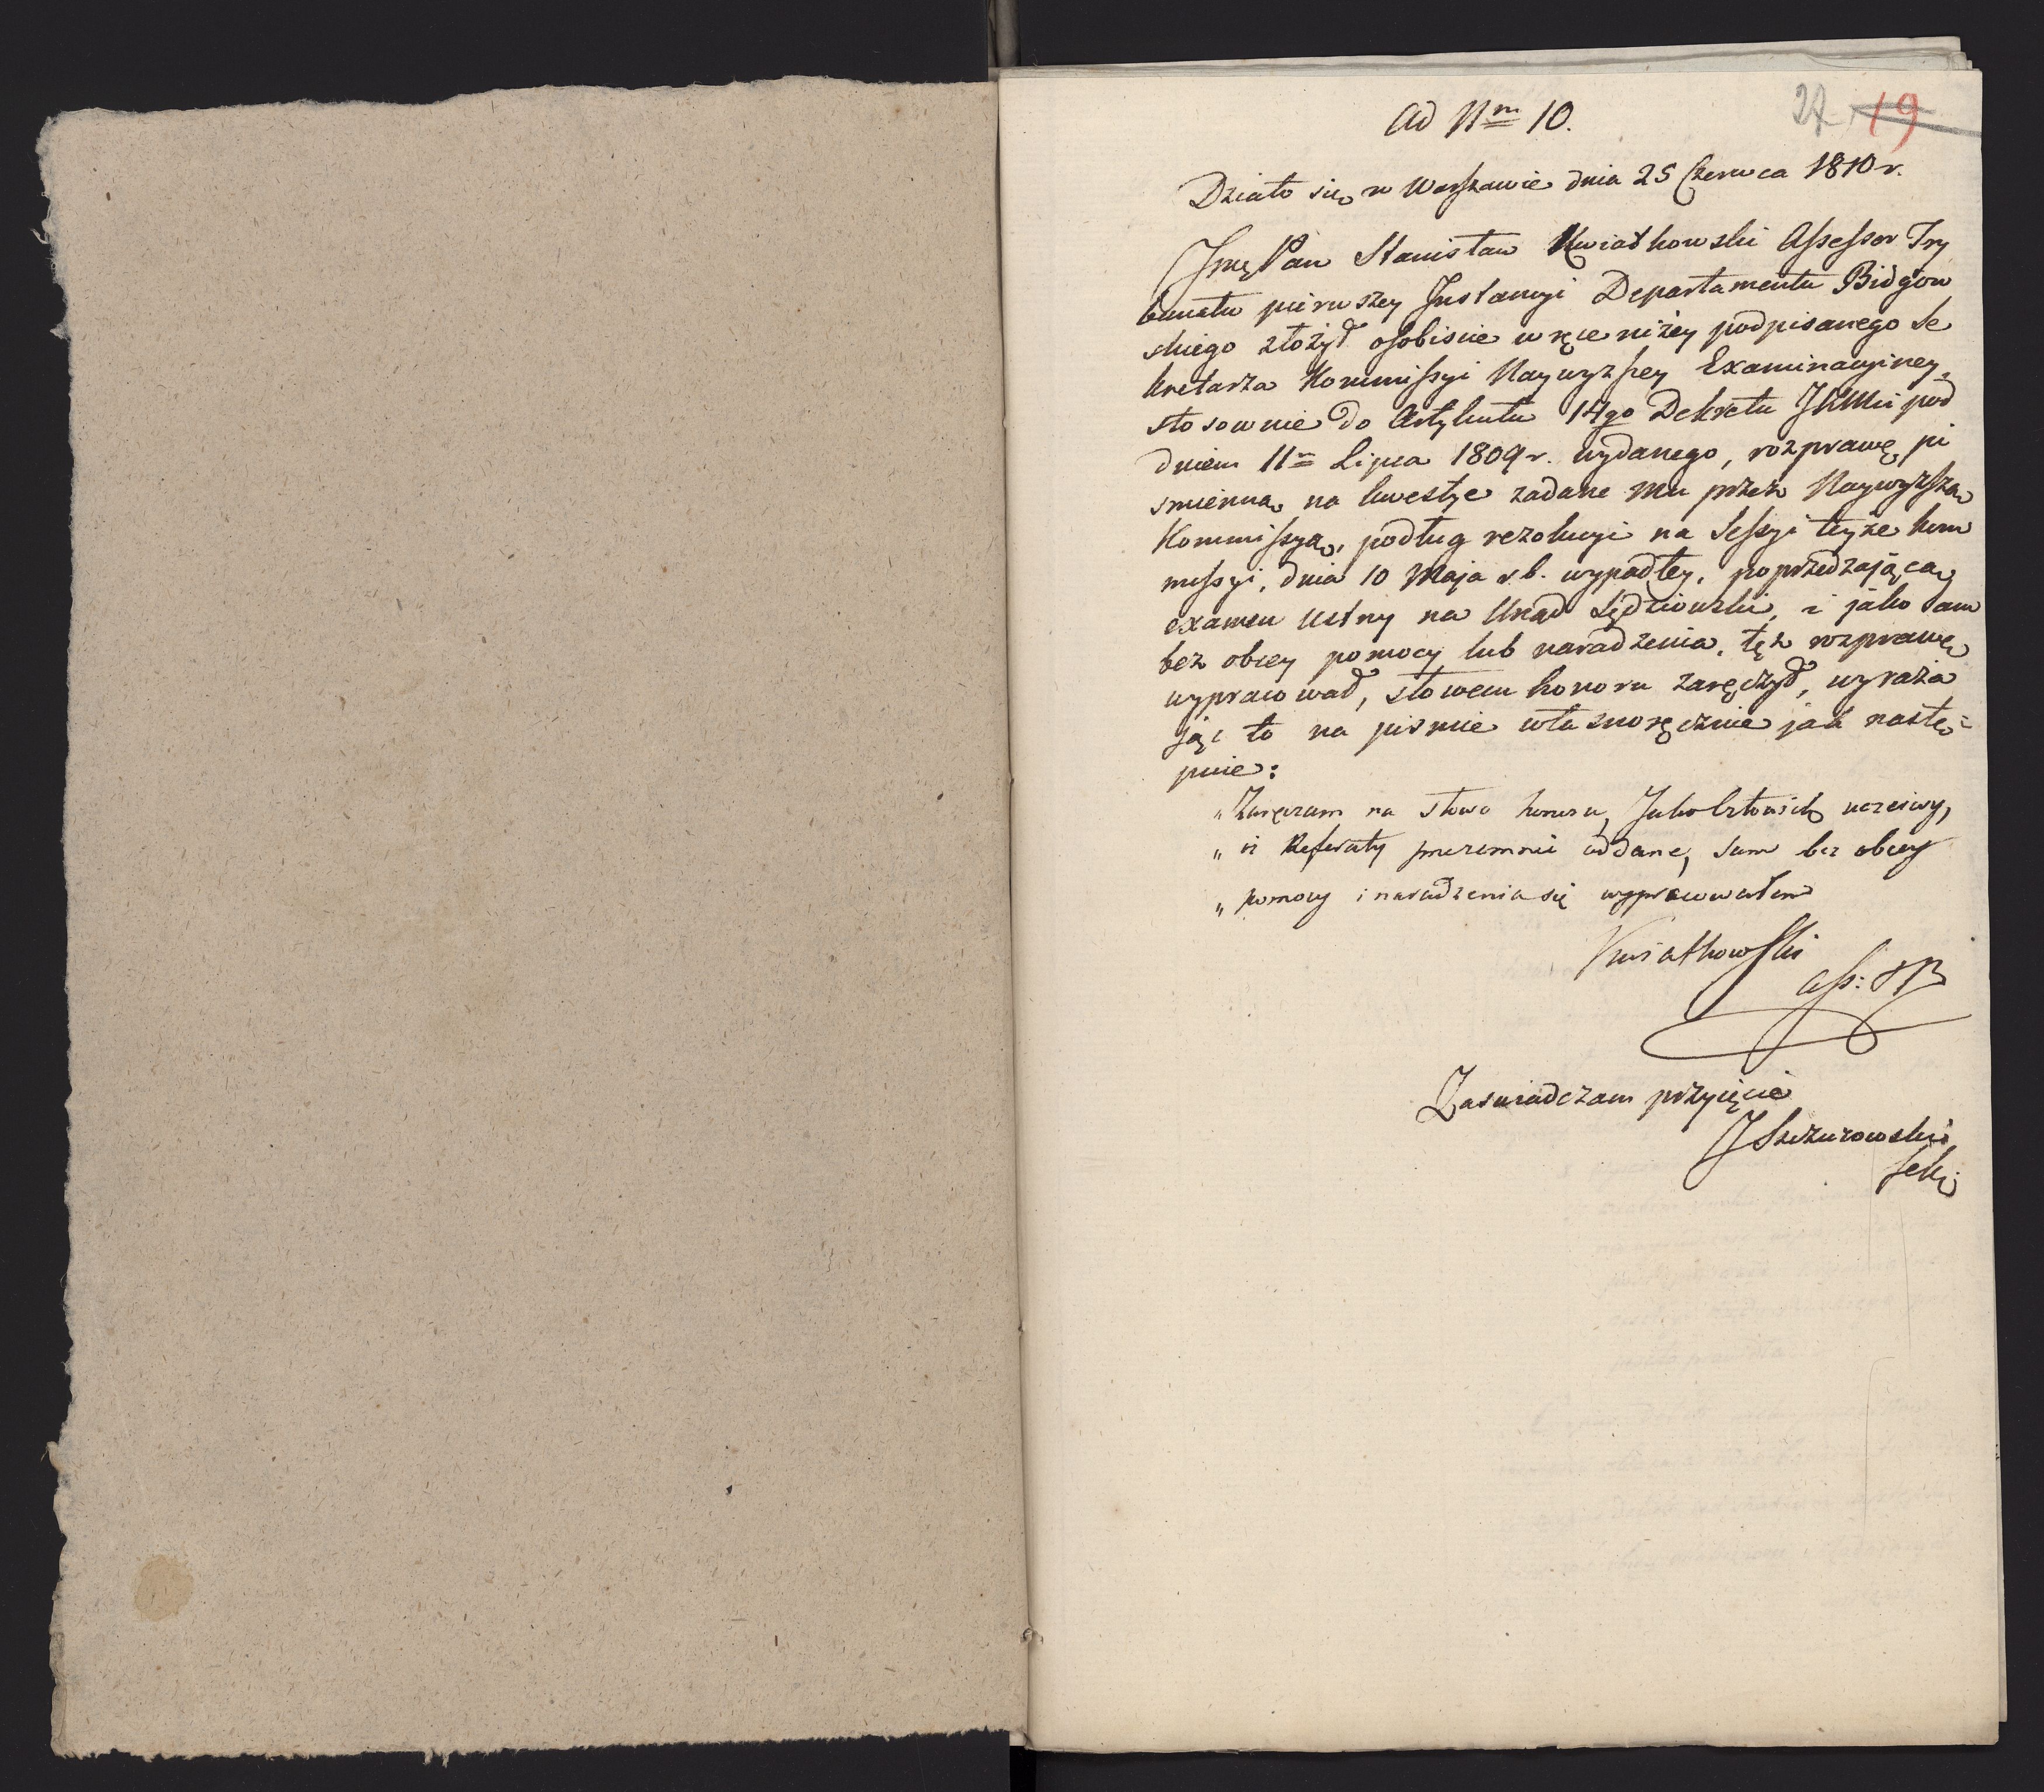 27 19
Ad Nrm 10.
Działo się w Warszawie dnia 25 Czerwca 1810 r.
Jmć Pan Stanisław Kwiatkowski Assessor Try
bunału pierwszey Instancyi Departamentu Bidgow
skiego złożył osobiscie w ręce niżey podpisanego Se
kretarza Kommissyi Naywyzszey Examinacyiney,
stosownie do Artykułu 14go Dekretu JKMci pod
dniem 11m Lipca 1809 r. wydanego, rozprawę pi
smienną na kwestye zadane mu przez Naywyższą
Kommissyą, podług rezolucyi na Sessyi teyże kom
missyi, dnia 10 Maja r.b. wypadłey, poprzedzającą
examen ustny na Urząd Sędziowski, i jako sam
bez obcey pomocy lub naradzenia, też rozprawę
wypracował, słowem honoru zaręczył, wyraża
jąc to na pismie własnoręcznie jak nastę=
pnie:
„Zaręczam na słowo honoru, Jako Człowiek uczciwy,
„iż Referaty przezemnie oddane, sam bez obcey
„pomocy i naradzenia się wypracowałem
Kwiatkowski
Ass:
Zaswiadczam przyięcie
J Szczurowski
Sek: